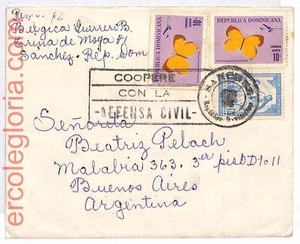 Belgica Guerrero B.
Sanchez, Rep. Dom
REPUBLICA DOMINICANA
10¢
REPUBLICA DOMINICANA
10¢
COOPERE
CON LA
-DEFENSA CIVIL-
SANCHEZ
Señorita
Beatriz Pelach
Malabia 363. 3er piso Dto 11
Buenos Aires
Argentina
ercolegloria.com